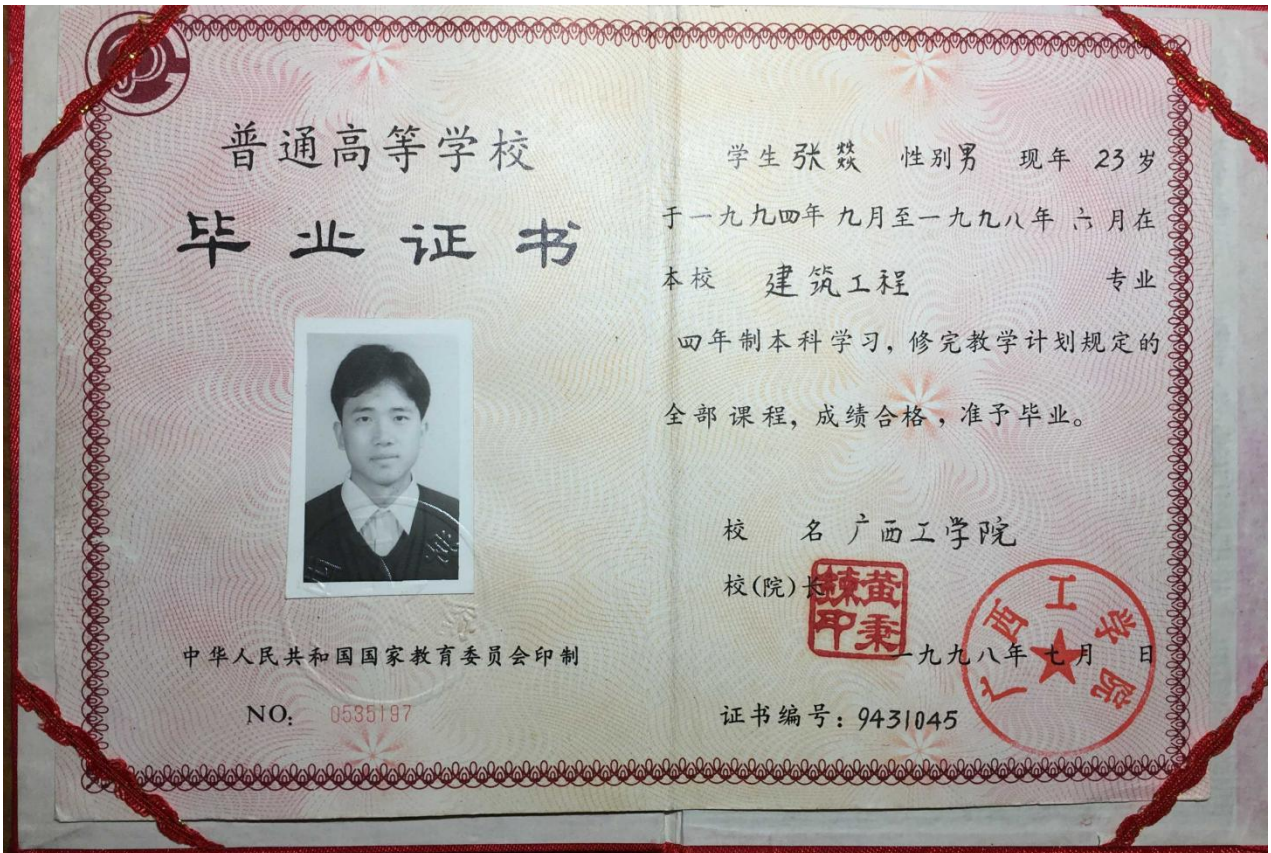 普通高等学校
毕业证书
中华人民共和国国家教育委员会印制
NO: 0535197
学生张燚 性别男 现年 23岁
于一九九四年九月至一九九八年六月在
本校 建筑工程 专业
四年制本科学习，修完教学计划规定的
全部课程，成绩合格，准予毕业。
校 名 广西工学院
校(院)长
黄秉
印
一九九八年七月 日
广西工学院
证书编号：9431045